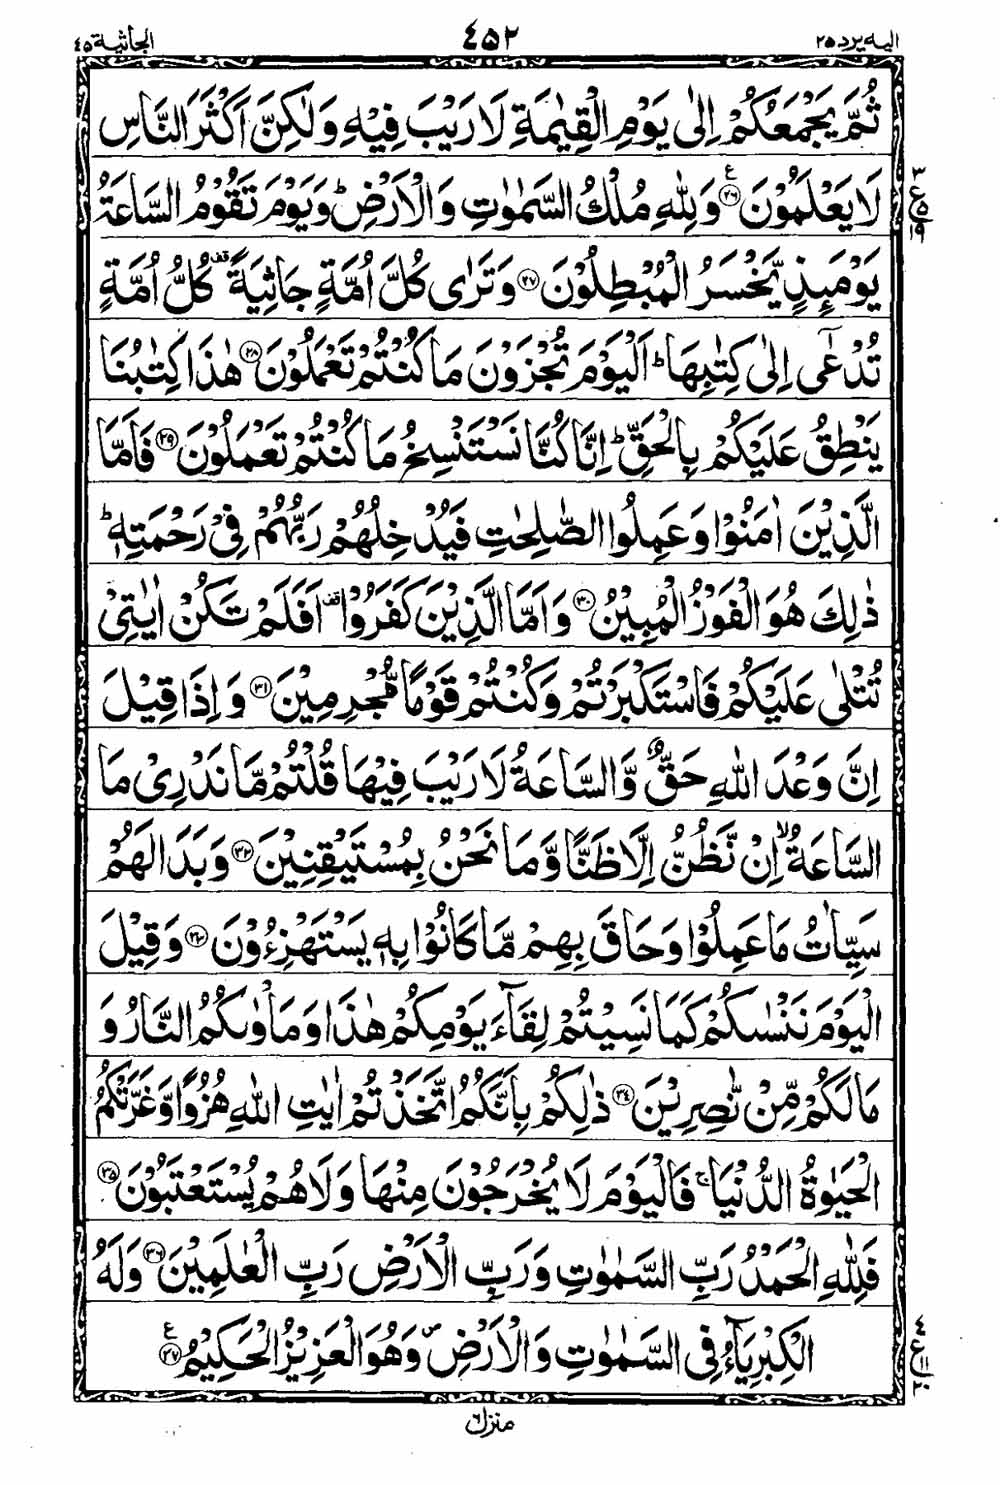 اليه يرد ٢٥ ٤٥٢ الجاثية ٤٥
ثُمَّ يَجْمَعُكُمْ اِلٰى يَوْمِ الْقِيٰمَةِ لَا رَيْبَ فِيْهِ وَلٰكِنَّ اَكْثَرَ النَّاسِ
لَا يَعْلَمُوْنَ ﴿٢٦﴾ ع وَلِلّٰهِ مُلْكُ السَّمٰوٰتِ وَالْاَرْضِ ؕ وَيَوْمَ تَقُوْمُ السَّاعَةُ
٣ ع ٥ ١٩
يَوْمَىِٕذٍ يَّخْسَرُ الْمُبْطِلُوْنَ ﴿٢٧﴾ وَتَرٰى كُلَّ اُمَّةٍ جَاثِيَةً قف كُلُّ اُمَّةٍ
تُدْعٰٓى اِلٰى كِتٰبِهَا ؕ اَلْيَوْمَ تُجْزَوْنَ مَا كُنْتُمْ تَعْمَلُوْنَ ﴿٢٨﴾ هٰذَا كِتٰبُنَا
يَنْطِقُ عَلَيْكُمْ بِالْحَقِّ ؕ اِنَّا كُنَّا نَسْتَنْسِخُ مَا كُنْتُمْ تَعْمَلُوْنَ ﴿٢٩﴾ فَاَمَّا
الَّذِيْنَ اٰمَنُوْا وَعَمِلُوا الصّٰلِحٰتِ فَيُدْخِلُهُمْ رَبُّهُمْ فِيْ رَحْمَتِهٖ ؕ
ذٰلِكَ هُوَ الْفَوْزُ الْمُبِيْنُ ﴿٣٠﴾ وَاَمَّا الَّذِيْنَ كَفَرُوْا قف اَفَلَمْ تَكُنْ اٰيٰتِيْ
تُتْلٰى عَلَيْكُمْ فَاسْتَكْبَرْتُمْ وَكُنْتُمْ قَوْمًا مُّجْرِمِيْنَ ﴿٣١﴾ وَاِذَا قِيْلَ
اِنَّ وَعْدَ اللّٰهِ حَقٌّ وَّالسَّاعَةُ لَا رَيْبَ فِيْهَا قُلْتُمْ مَّا نَدْرِيْ مَا
السَّاعَةُ ۙ اِنْ نَّظُنُّ اِلَّا ظَنًّا وَّمَا نَحْنُ بِمُسْتَيْقِنِيْنَ ﴿٣٢﴾ وَبَدَا لَهُمْ
سَيِّاٰتُ مَا عَمِلُوْا وَحَاقَ بِهِمْ مَّا كَانُوْا بِهٖ يَسْتَهْزِءُوْنَ ﴿٣٣﴾ وَقِيْلَ
الْيَوْمَ نَنْسٰىكُمْ كَمَا نَسِيْتُمْ لِقَآءَ يَوْمِكُمْ هٰذَا وَمَاْوٰىكُمُ النَّارُ وَ
مَا لَكُمْ مِّنْ نّٰصِرِيْنَ ﴿٣٤﴾ ذٰلِكُمْ بِاَنَّكُمُ اتَّخَذْتُمْ اٰيٰتِ اللّٰهِ هُزُوًا وَّغَرَّتْكُمُ
الْحَيٰوةُ الدُّنْيَا ۚ فَالْيَوْمَ لَا يُخْرَجُوْنَ مِنْهَا وَلَا هُمْ يُسْتَعْتَبُوْنَ ﴿٣٥﴾
فَلِلّٰهِ الْحَمْدُ رَبِّ السَّمٰوٰتِ وَرَبِّ الْاَرْضِ رَبِّ الْعٰلَمِيْنَ ﴿٣٦﴾ وَلَهُ
الْكِبْرِيَآءُ فِي السَّمٰوٰتِ وَالْاَرْضِ ۪ وَهُوَ الْعَزِيْزُ الْحَكِيْمُ ﴿٣٧﴾ ع
٤ ع ١١ ٢٠
منزل ٦